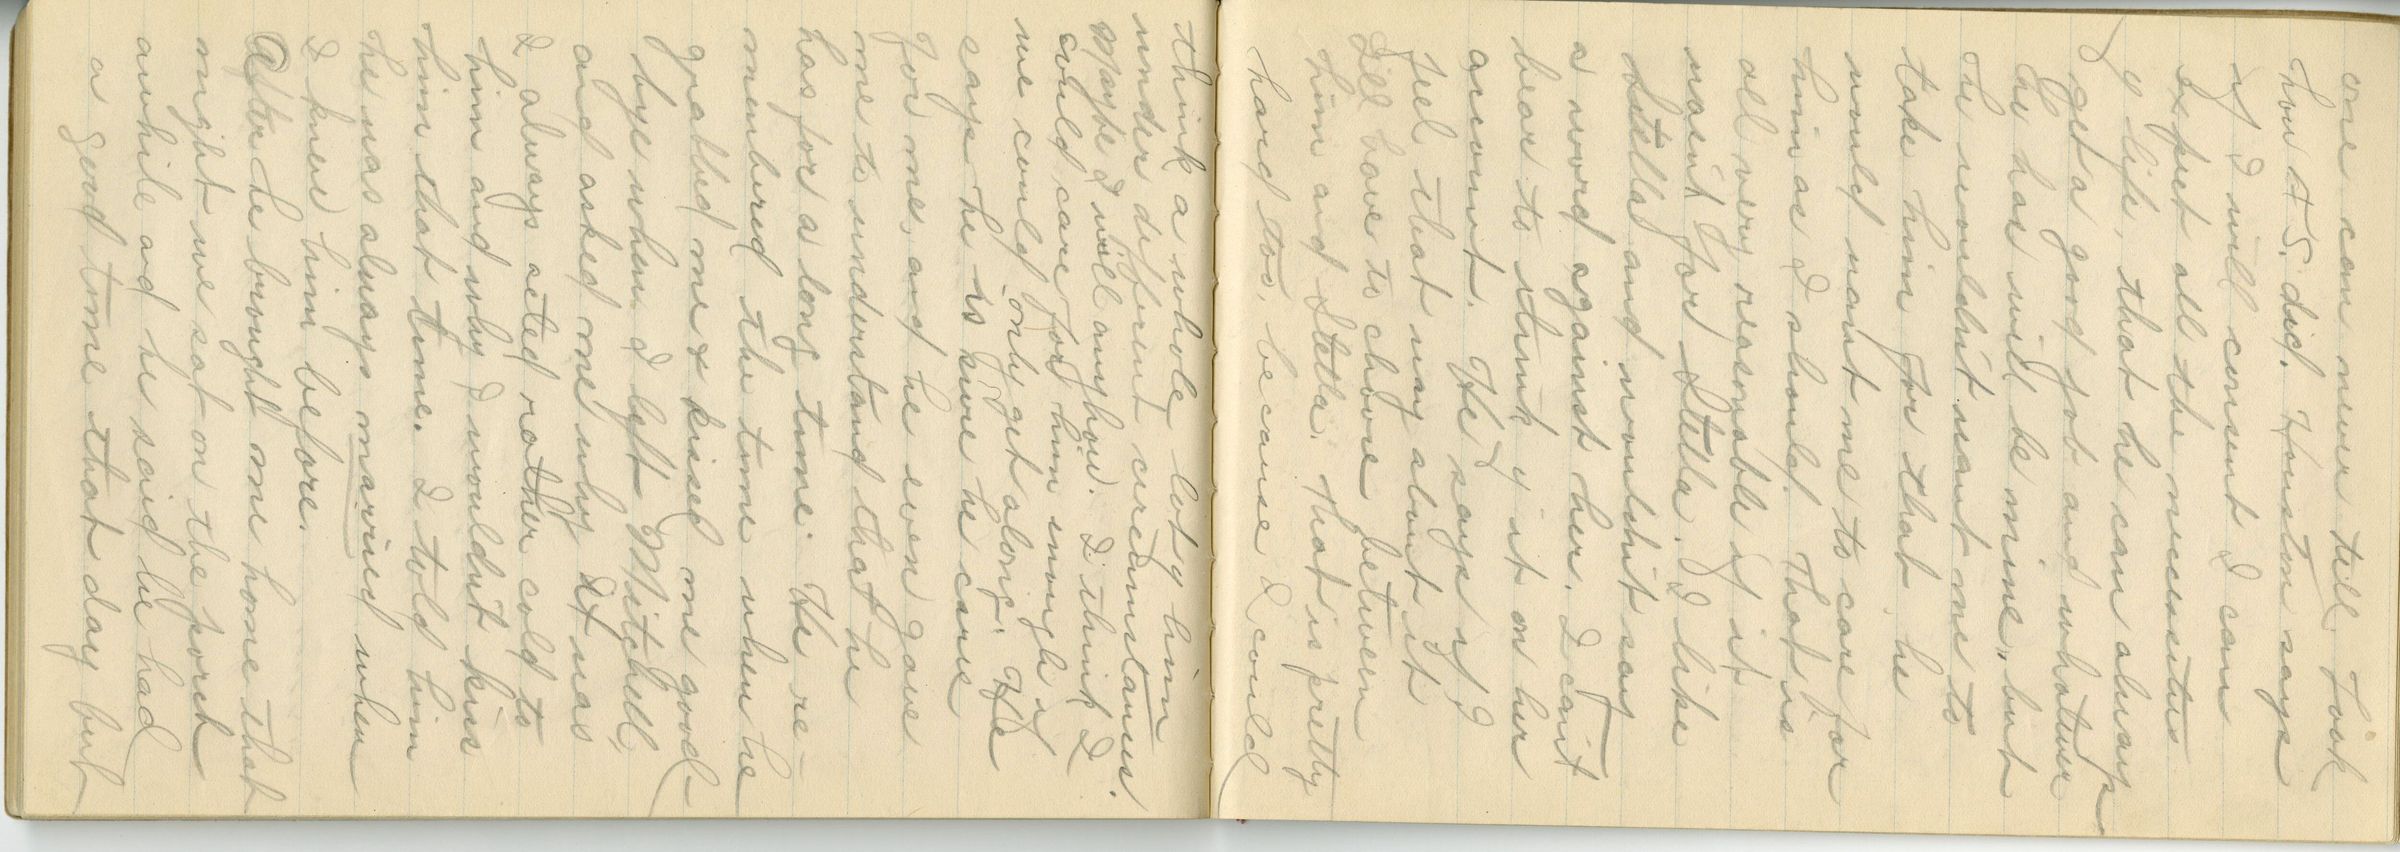 one can never tell. Look
how A S. did. Houston says
if I will consent I can
expect all the necessities
of life, that he can always
get a good job and whatever
he has will be mine, but
he wouldn't want me to
take him for that he
would want me to care for
him as I should. That is
all very reasonable if it
wasn't for Stella. I like
Stella and wouldn't say
a word against her. I can't
bear to think of it on her
account. He says if I
feel that way about it
I'll have to choose between
him and Stella. That is pretty
hard too, because I could
think a whole lot of him
under different circumstances.
Maybe I will anyhow. I think I
could care for him enough if
we could only get along. He
says he is sure he cares
for me, and he even gave
me to understand that he
has for a long time. He re-
membered the time when he
grabbed me & kissed me good
bye when I left Mitchell,
and asked me why it was
I always acted rather cold to
him and why I wouldn't kiss
him that time. I told him
he was always married when
I knew him before.
After he brought me home that
night we sat on the porch
awhile and he said he had
a good time that day but